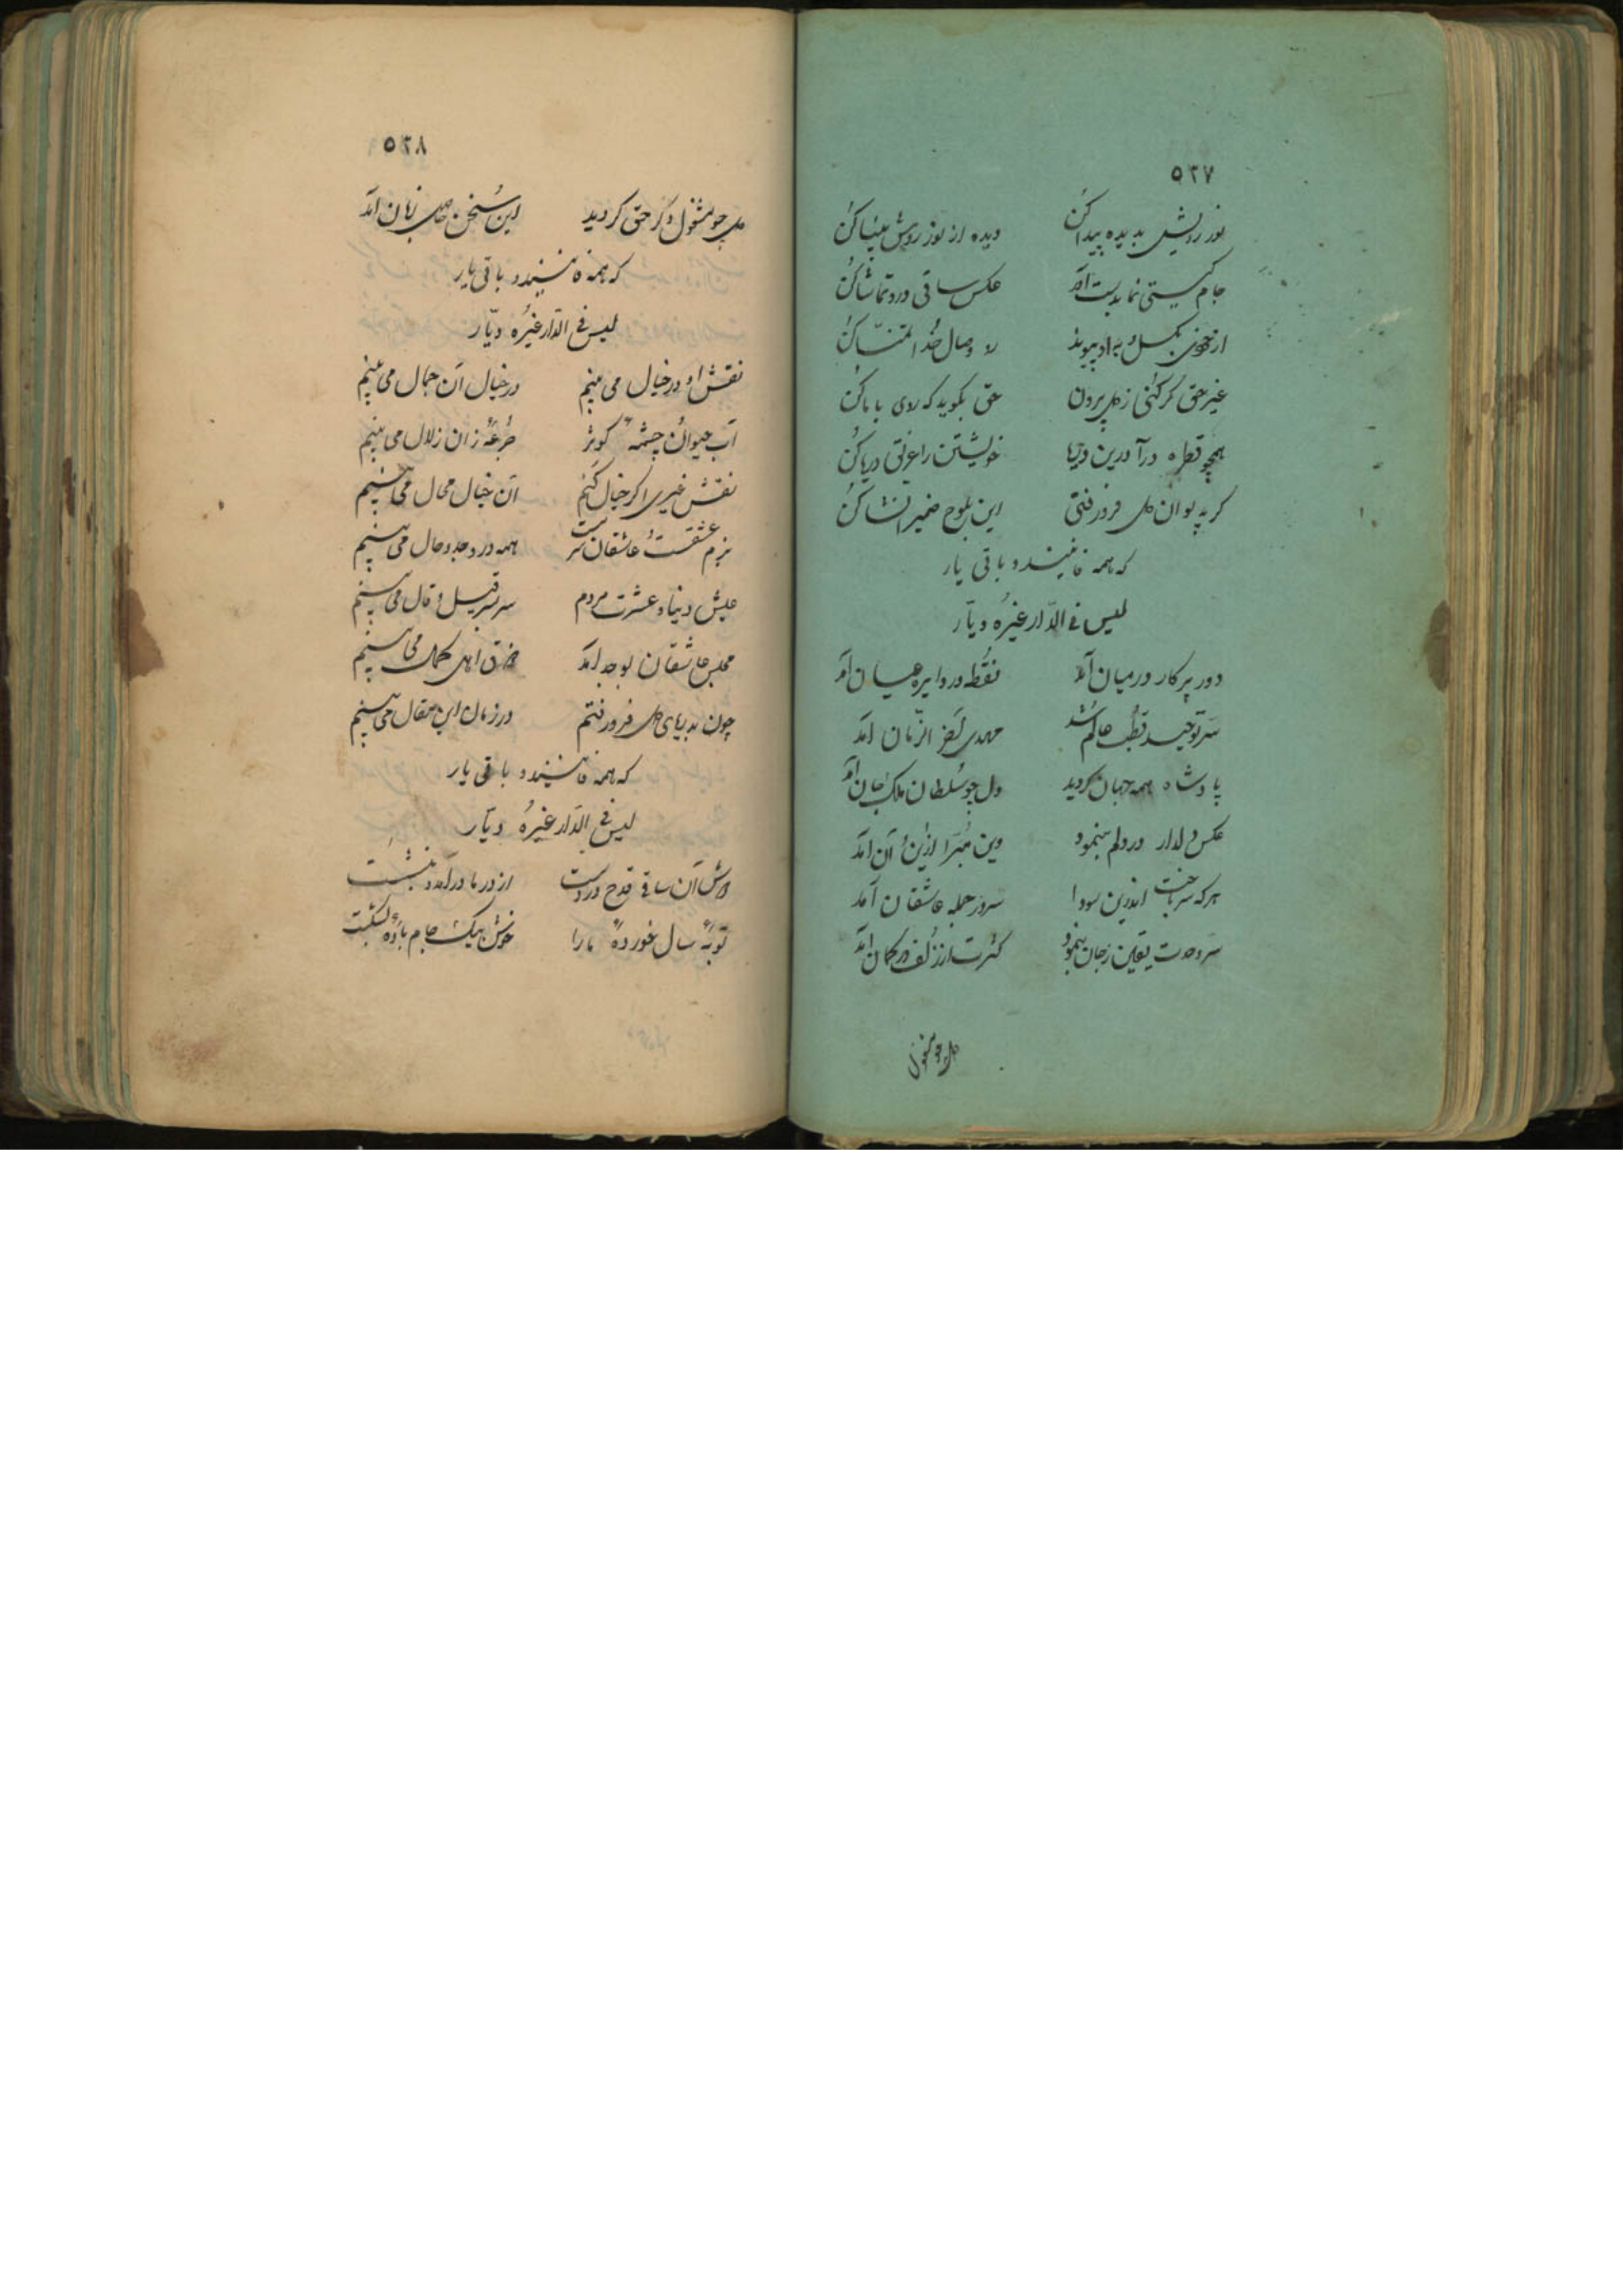 ٥٢٧
نور رویش بدیده پیدا کن دیده از نور روش بینا کن
جام گیتی نما بدست آور عکس ساقی درو تماشا کن
از خودی بگسل و باو پیوند رو وصال خدا تمنّا کن
غیر حق گر کنی ز دل بیرون حق بگوید که روی با ما کن
همچو قطره درآ درین دریا خویشتن را غرق دریا کن
گر بدیوان دل فرو رفتی این بلوح ضمیر انشا کن
که همه فانیند و باقی یار
لیس فی الدّار غیرُه دیّار
دور پرکار درمیان آمد نقطه در دایره عیان آمد
سرّ توحید قطب عالم شد مهدی آخر الزّمان آمد
پادشاه همه جهان گردید دل چو سُلطان ملک جان آمد
عکس دلدار در دلم بنمود وین مُبرّا ازین و آن آمد
هرکه سر باخت اندرین سودا سرور جمله عاشقان آمد
سر وحدت یقین ز جان بنمود کثرت از زلف در گمان آمد
دل چو مشغول
٥٢٨
دل چو مشغول ذکر حق گردید این سُخن حاصل زبان آمد
که همه فانیند و باقی یار
لیس فی الدّار غیرُه دیّار
نقش او در خیال می بینم در خیال آن جمال می بینم
آب حیوان و چشمهٔ کوثر جُرعهٔ زان زلال می بینم
نقش غیری اگر خیال کنم آن خیال محال می بینم
بزم عشقست و عاشقان سرمست همه در وجد و حال می بینم
عیش دنیا و عشرت مردم سربسر قیل و قال می بینم
مجلس عاشقان بوجد آمد ذوق اهل کمال می بینم
چون بدریای دل فرو رفتم در زمان این مقال می بینم
که همه فانیند و باقی یار
لیس فی الدّار غیرُه دیّار
دوش آن ساقی قدح در دست از در ما درآمد و بنشست
توبهٔ سال خوردهٔ ما را خوش بیک جام باده بشکست